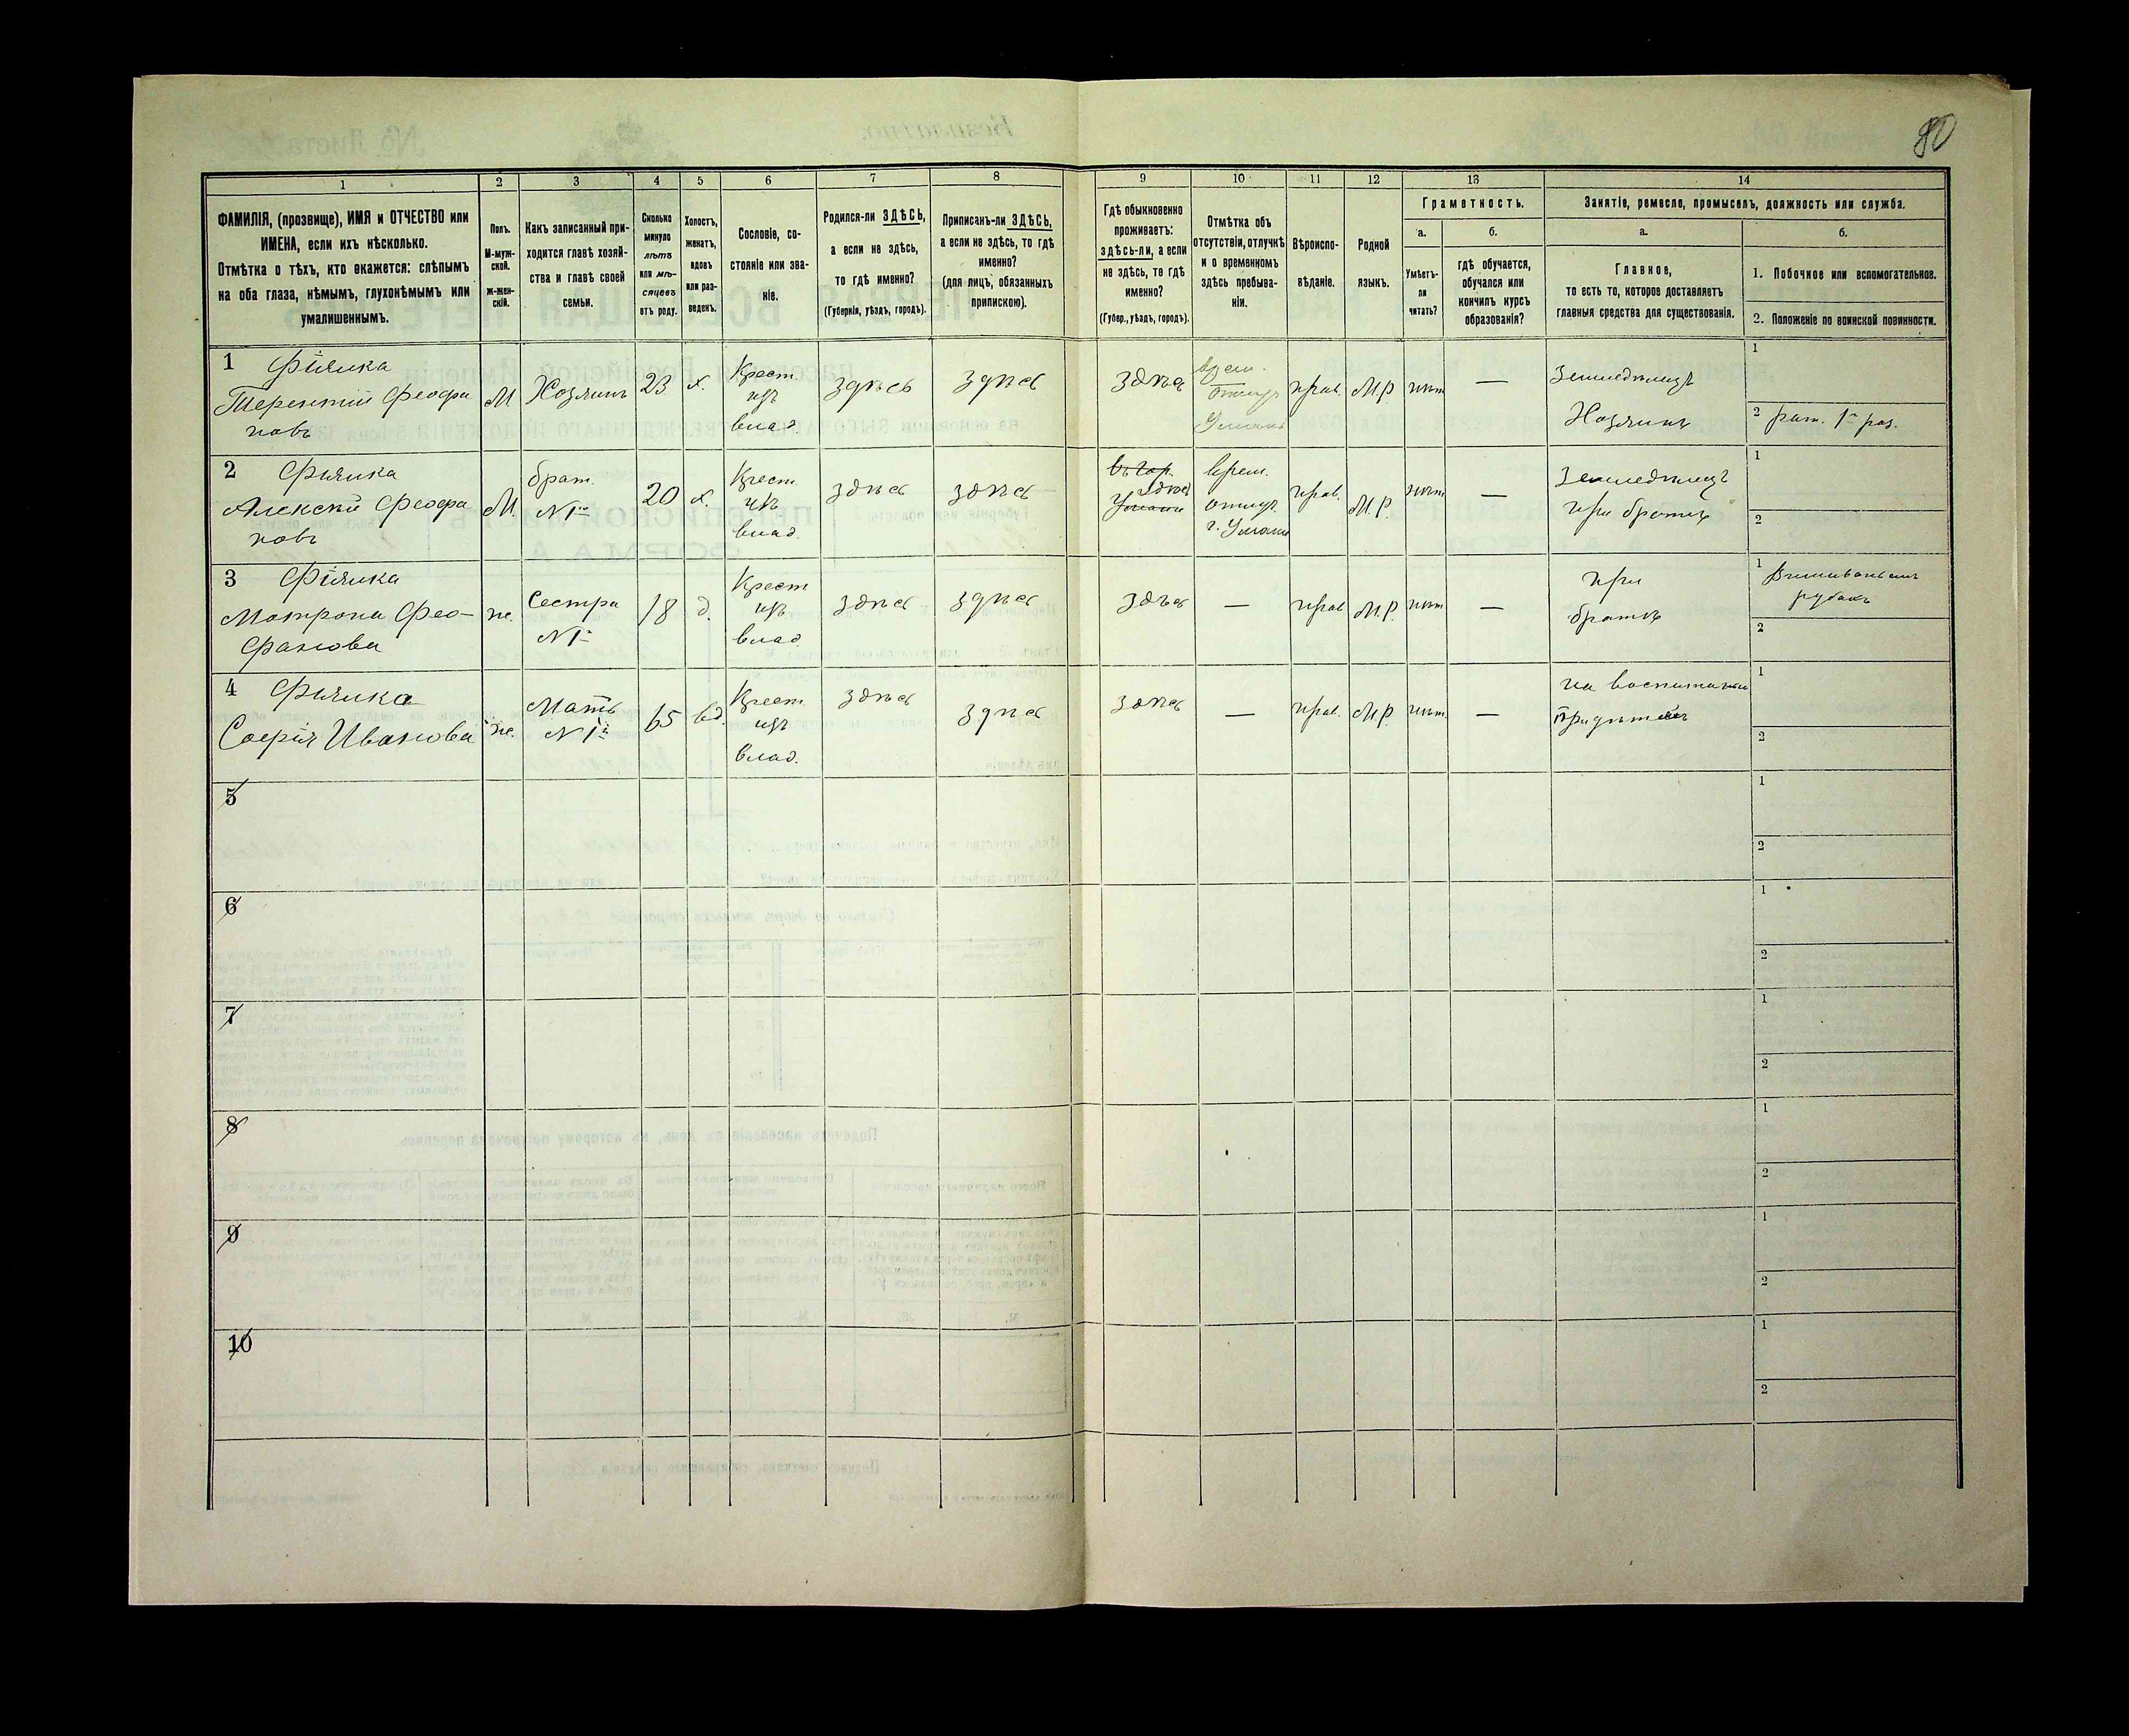 80
1 2 3 4 5 6 7 8 9 10 11 12 13 14
ФАМИЛІЯ, (прозвище), ИМЯ и ОТЧЕСТВО или
ИМЕНА, если ихъ нѣсколько.
Отмѣтка о тѣхъ, кто окажется: слѣпымъ
на оба глаза, нѣмымъ, глухонѣмымъ или
умалишеннымъ.
Полъ.
М-муж-
ской.
ж-жен-
скій.
Какъ записанный при-
ходится главѣ хозяй-
ства и главѣ своей
семьи.
Сколько
минуло
лѣтъ
или мѣ-
сяцевъ
отъ роду.
Холостъ,
женатъ,
вдовъ
или раз-
веденъ.
Сословіе, со-
стояніе или зва-
ніе.
Родился-ли ЗДѢСЬ,
а если не здѣсь,
то гдѣ именно?
(Губернія, уѣздъ, городъ).
Приписанъ-ли ЗДѢСЬ,
а если не здѣсь, то гдѣ
именно?
(для лицъ, обязанныхъ
припискою).
Гдѣ обыкновенно
проживаетъ:
здѣсь-ли, а если
не здѣсь, то гдѣ
именно?
(Губер., уѣздъ, городъ).
Отмѣтка объ
отсутствіи, отлучкѣ
и о временномъ
здѣсь пребыва-
ніи.
Вѣроиспо-
вѣданіе.
Родной
языкъ.
Грамотность.
а.
Умѣетъ-
ли
читать?
б.
гдѣ обучается,
обучался или
кончилъ курсъ
образованія?
Занятіе, ремесло, промыселъ, должность или служба.
а.
Главное,
то есть то, которое доставляетъ
главныя средства для существованія.
б.
1. Побочное или вспомогательное.
2. Положеніе по воинской повинности.
1 Фіялка
Терентій Феофа
новъ
М
Хозяинъ
23
х.
Крест.
изъ
влад.
здѣсь
здѣсь
здѣсь
врем.
отлуч
Умань
прав.
М.Р.
нѣт
—
Земледѣлецъ
Хозяинъ
1
2 рат. 1го раз.
2 Фіялка
Алексѣй Феофа
новъ
М.
брат.
N 1го
20
х.
Крест
изъ
влад.
здѣсь
здѣсь
въ гор.
здѣсь
Умани
врем.
отлуч.
г. Умань
прав.
М.Р.
нѣт
—
Земледѣлецъ
при братѣ
1
2
3 Фіялка
Матрона Фео-
фанова
ж.
Сестра
N 1го
18
д.
Крест
изъ
влад.
здѣсь
здѣсь
здѣсь
—
прав
М.Р.
нѣт
—
при
братѣ
1
рубахъ
2
4 Фіялка
Софія Иванова
ж.
Мать
N 1го
65
вд.
Крест.
изъ
влад.
здѣсь
здѣсь
здѣсь
—
прав.
М.Р.
нѣт.
—
1
2
5
1
2
6
1
2
7
1
2
8
1
2
9
1
2
10
1
2